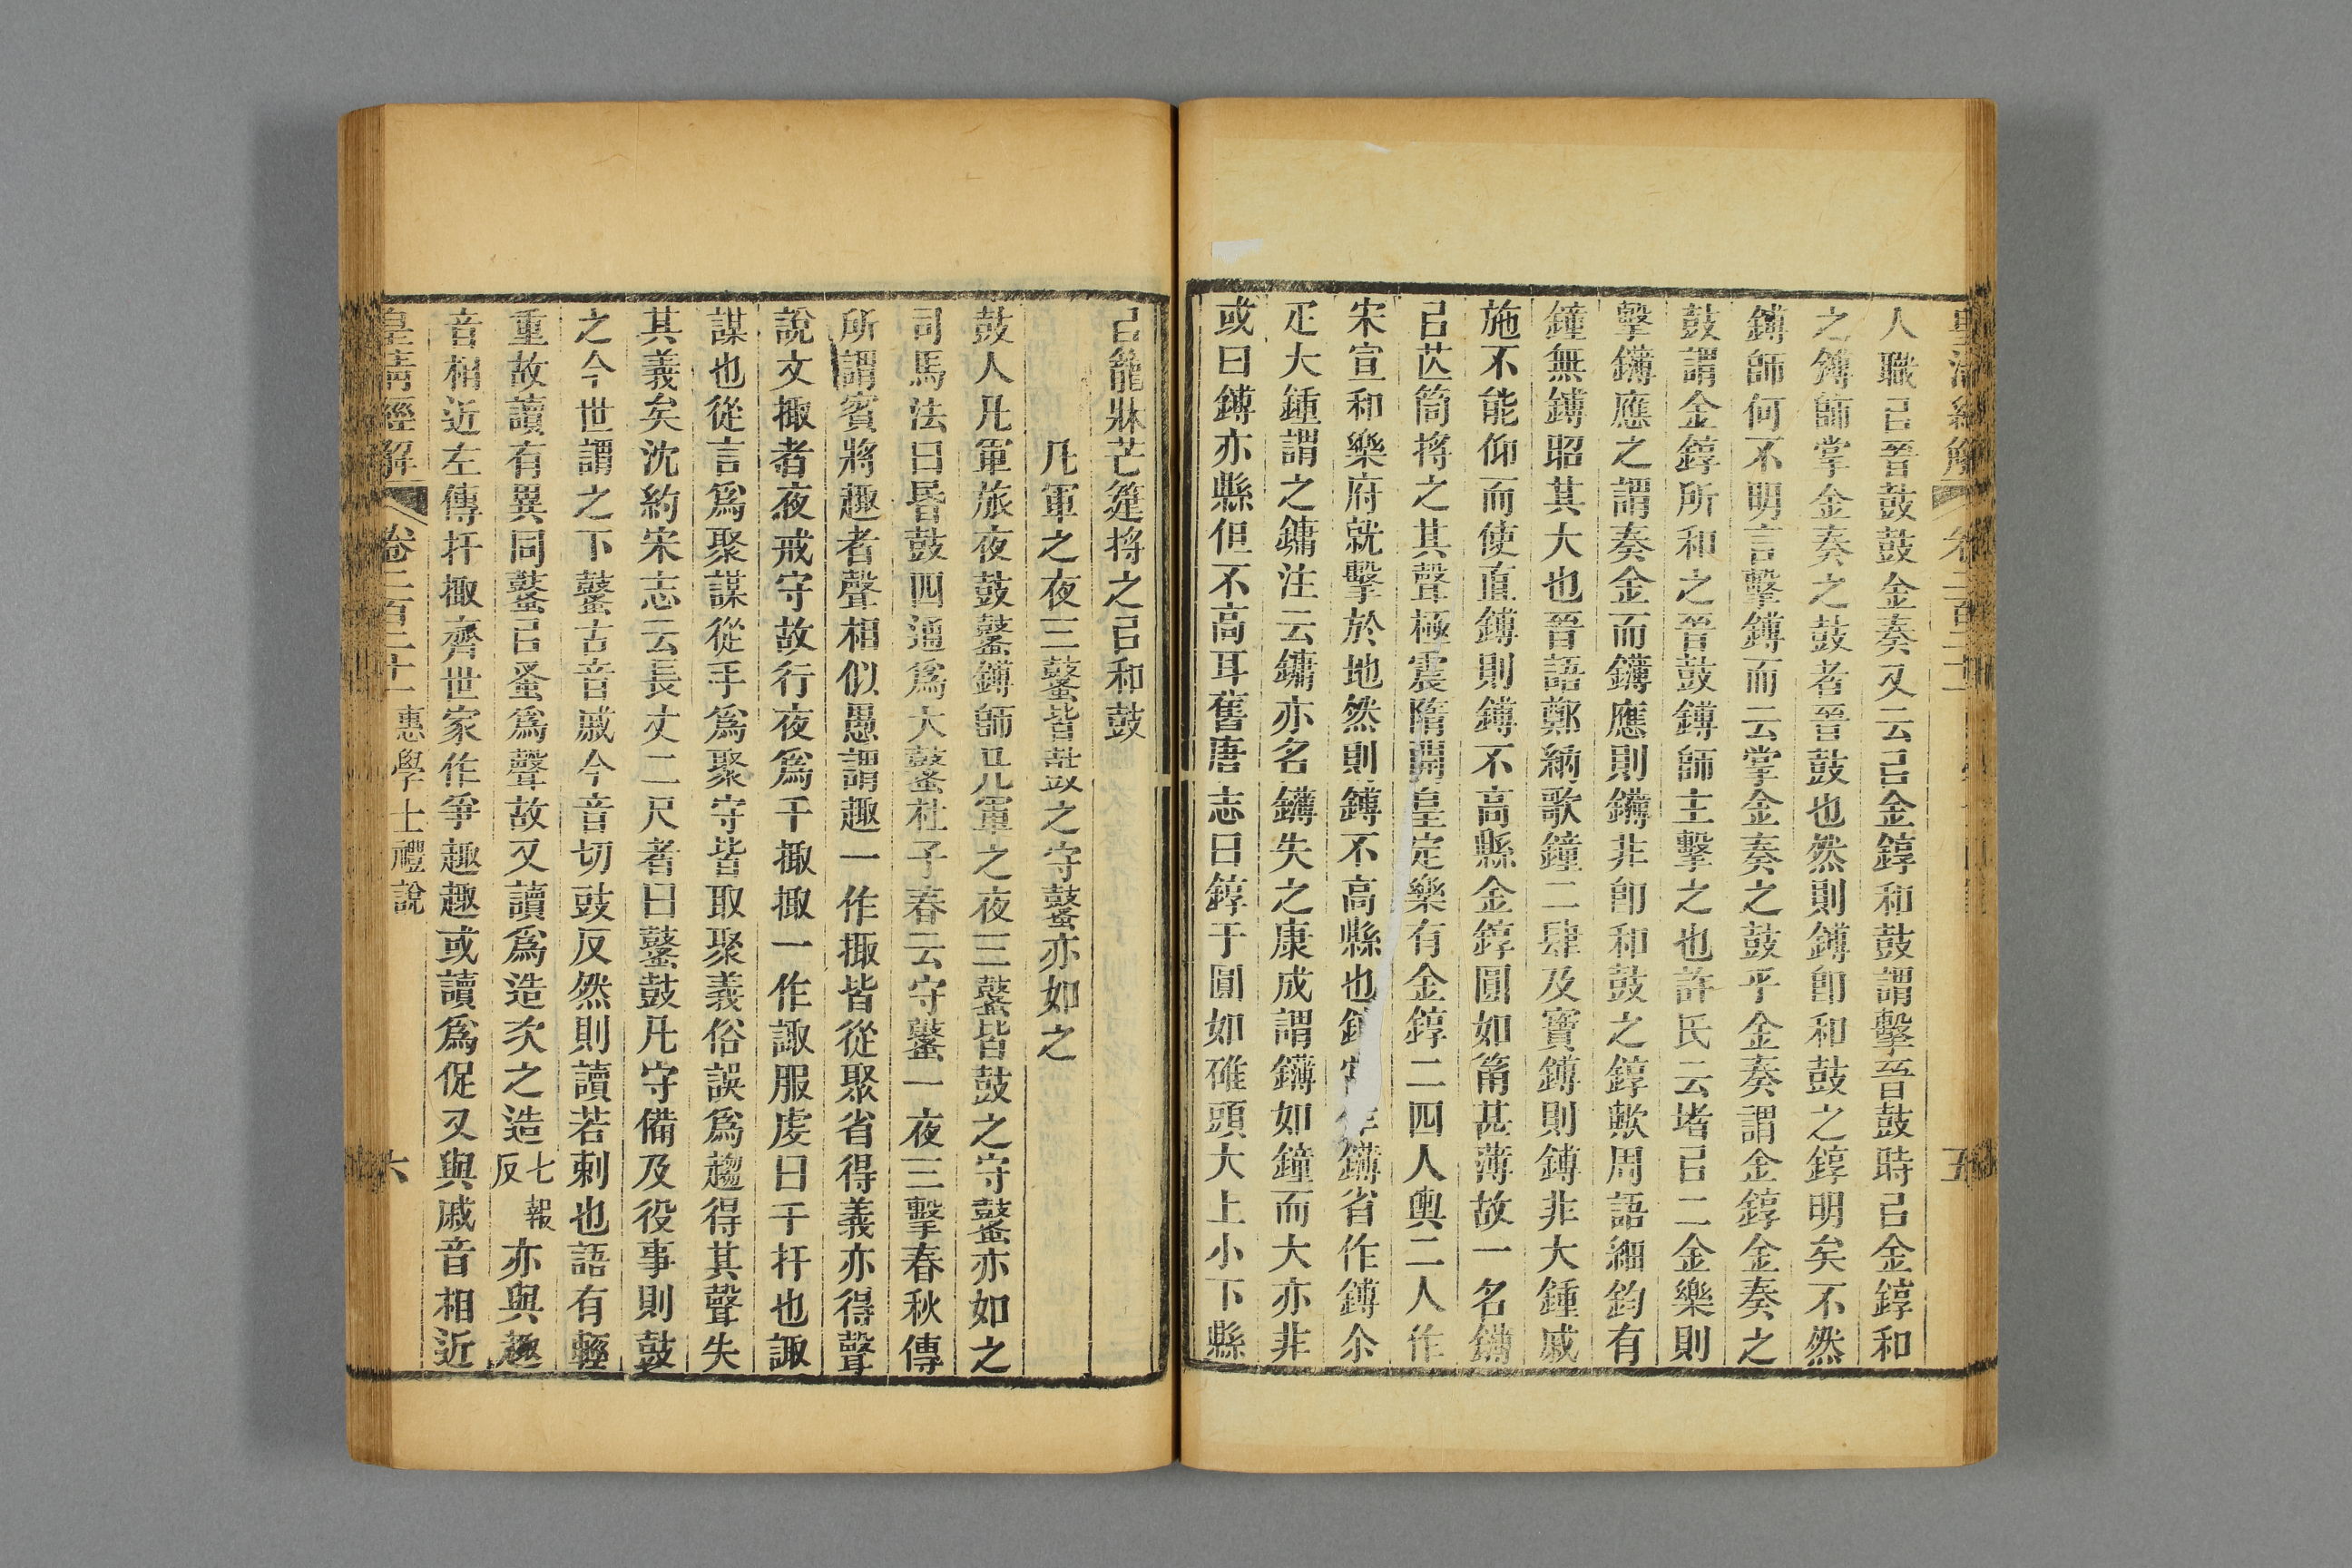 人職㠯晉鼓鼓金奏又云㠯金錞和鼓謂擊晉鼓時㠯金錞和
之鎛師掌金奏之鼓者晉鼓也然則鎛卽和鼓之錞明矣不然
鎛師何不明言擊鎛而云掌金奏之鼓乎金奏謂金錞金奏之
鼓謂金錞所和之晉鼓鎛師主擊之也許氏云堵㠯二金樂則
擊鑮應之謂奏金而鑮應則鑮非卽和鼓之錞歟周語細鈞有
鐘無鎛昭其大也晉語鄭納歌鐘二肆及寶鎛則鎛非大鍾戚
施不能仰而使直鎛則鎛不高縣金錞圓如筩甚薄故一名鑮
㠯芒筒捋之其聲極震隋開皇定樂有金錞二四人輿二人作
宋宣和樂府就擊於地然則鎛不高縣也作鑮省作鎛尒
疋大鍾謂之鏞注云鏞亦名鑮失之康成謂鑮如鐘而大亦非
或曰鎛亦縣但不高耳舊唐志曰錞于圓如碓頭大上小下縣
㠯籠牀芒筳捋之㠯和鼓
凡軍之夜三鼜皆鼓之守鼜亦如之
鼓人凡軍旅夜鼓鼜鎛師凡軍之夜三鼜皆鼓之守鼜亦如之
司馬法曰昬鼓四通爲大鼜杜子春云守鼜一夜三擊春秋傳
所謂賓將趣者聲相似愚謂趣一作掫皆從聚省得義亦得聲
說文掫者夜戒守故行夜爲干掫掫一作諏服虔曰干扞也諏
謀也從言爲聚謀從手爲聚守皆取聚義俗誤爲趨得其聲失
其義矣沈約宋志云長丈二尺者曰鼜鼓凡守備及役事則鼓
之今世謂之下鼜古音戚今音切豉反然則讀若刺也語有輕
重故讀有異同鼜㠯蚤爲聲故又讀爲造次之造七報反亦與趣
音相近左傳扞掫齊世家作爭趣趣或讀爲促又與戚音相近
皇淸經解 卷二百二十一 惠學士禮說 六